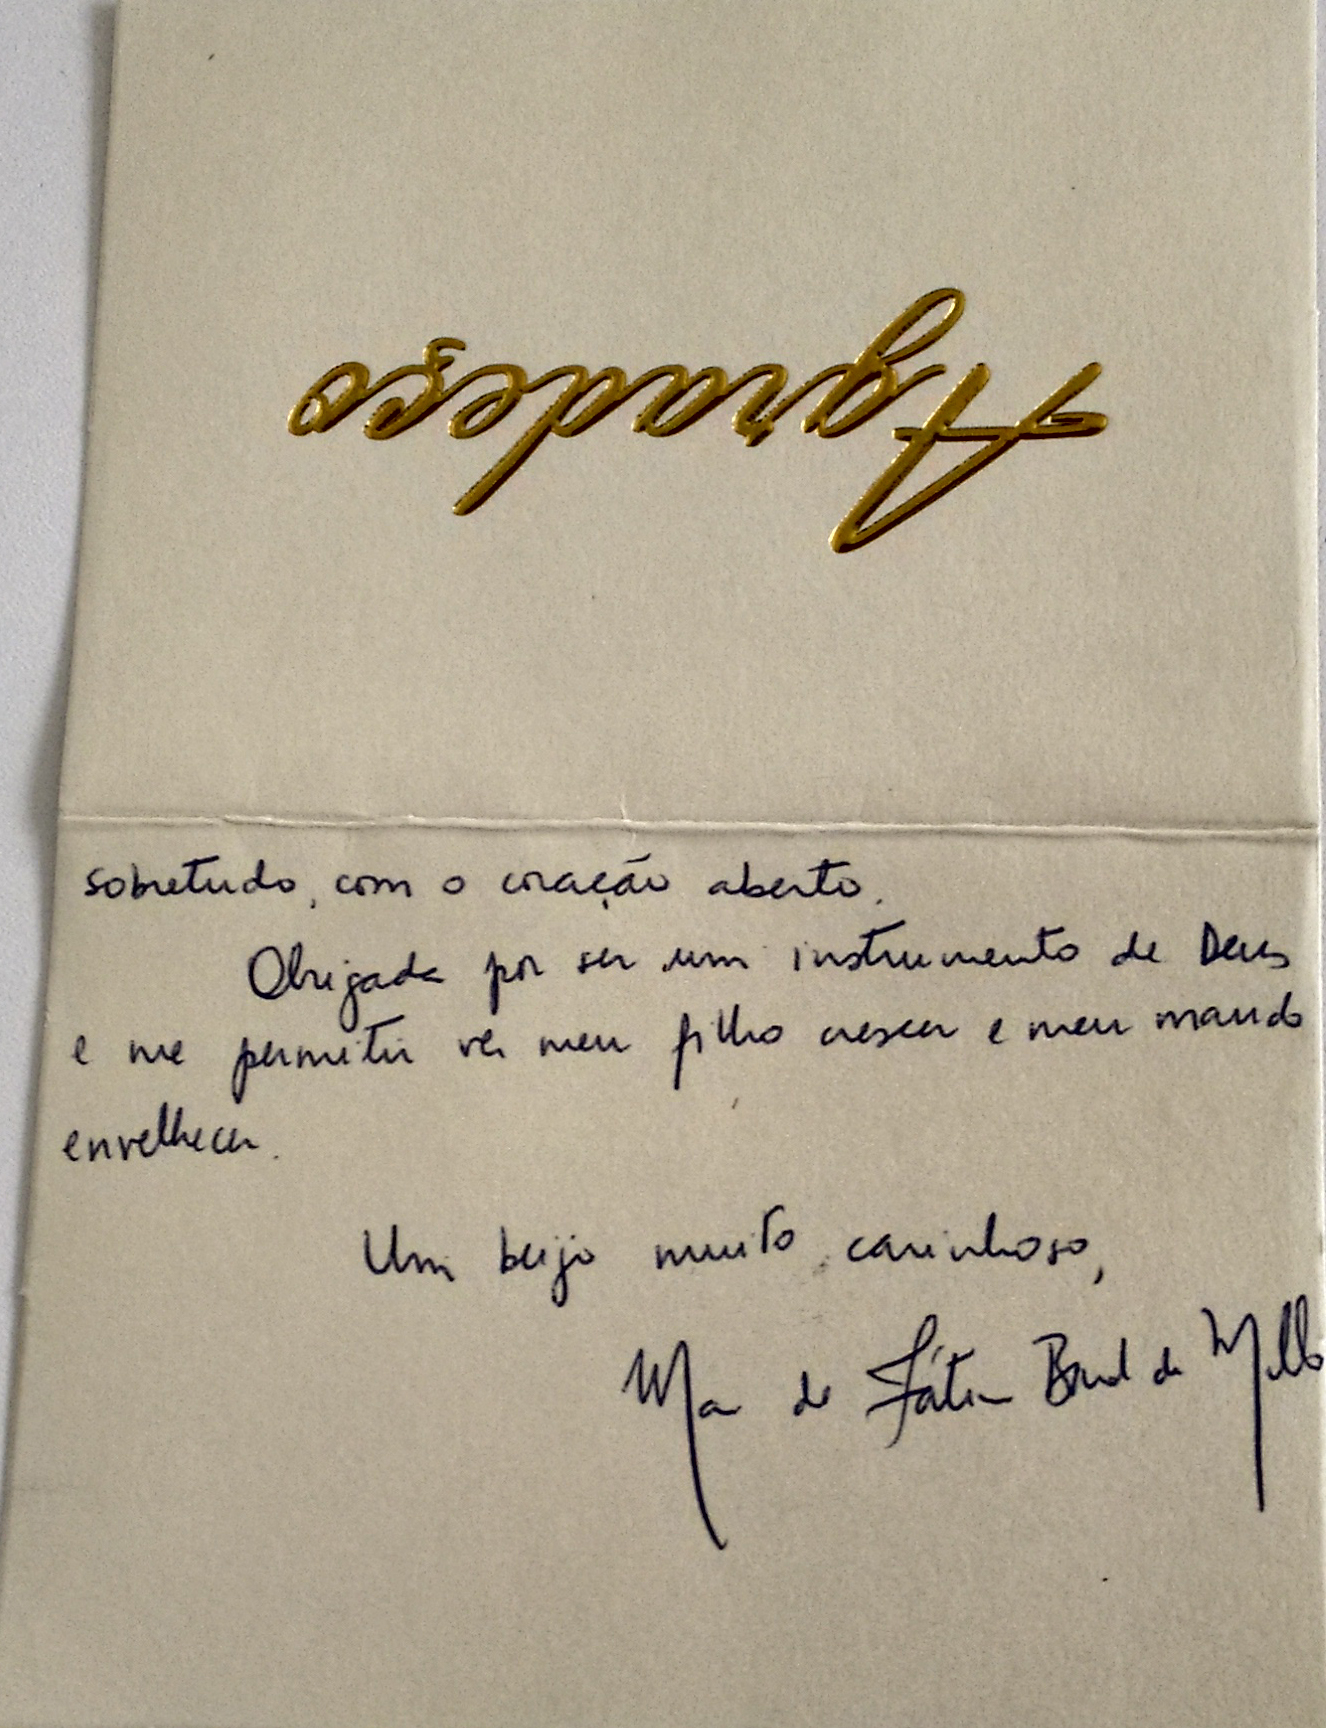 Agradeço
sobretudo, com o coração aberto.
Obrigada por ser um instrumento de Deus
e me permitir ver meu filho crescer e meu marido
envelhecer.
Um beijo muito carinhoso,
Ma de Fátima de Mello